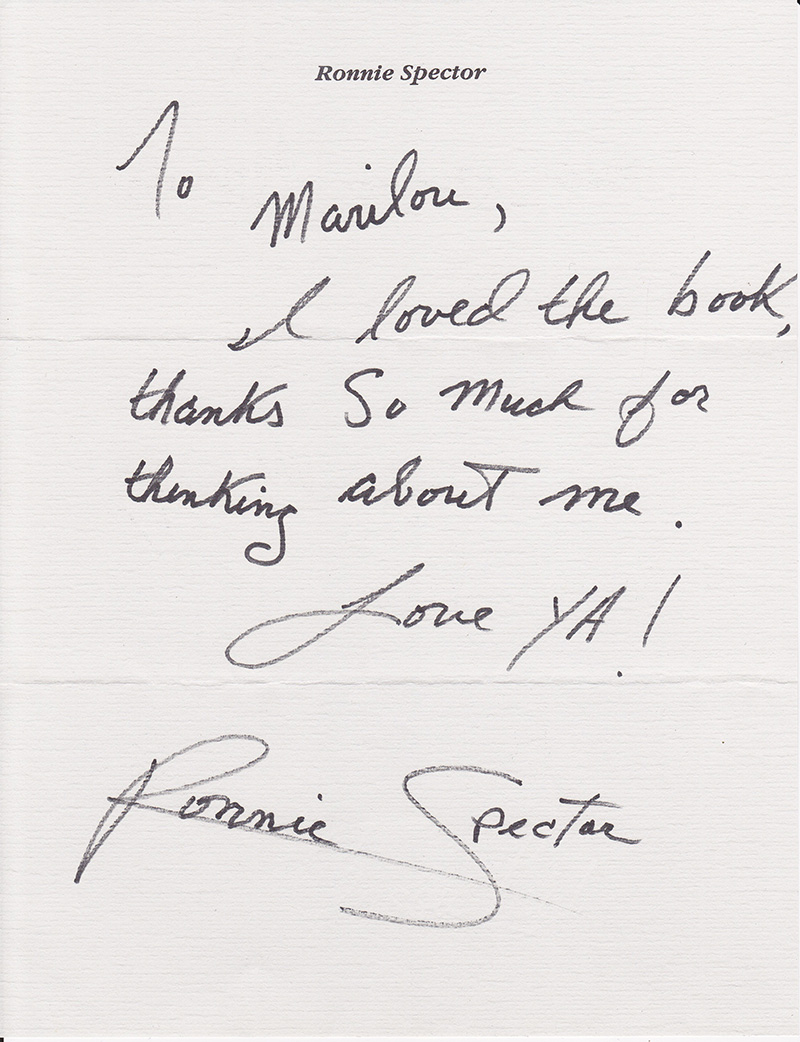 Ronnie Spector
To Marilou,
I loved the book,
thanks So Much for
thinking about me.
Love YA!
Ronnie Spector